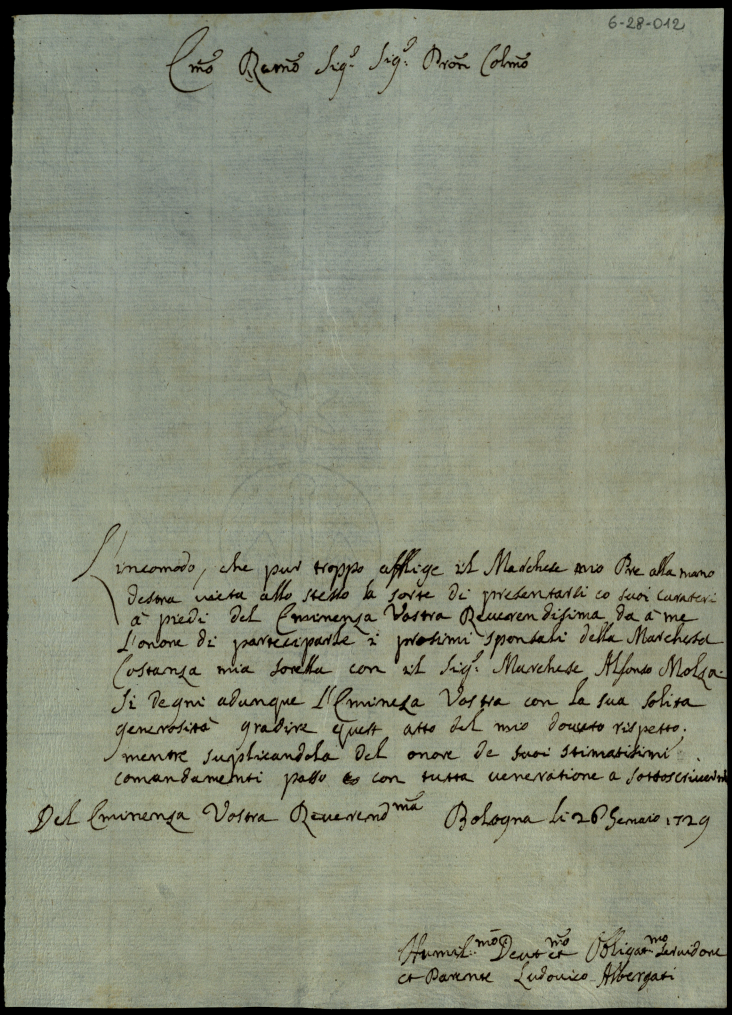 6-28-012
Emõ Remõ Sigr. Sigr. Pròn Colmõ
L'incomodo, che pur troppo afflige il Marchese mio Pre alla mano
destra vieta allo stesso la sorte di presentarsi co suoi carateri
à piedi del Eminenza Vostra Reverendisima da à me
L'onore di participarle i prosimi sponsali della Marchesa
Costanza mia sorella con il Sigr. Marchese Alfonso Molza
Si degni adunque L'Emineza Vostra con la sua solita
generosità gradire quest atto del mio dovuto rispetto;
mentre suplicandola del onore de suoi stimatisimi
comandamenti passo con tutta veneratione a sottoscrivermi
Del Eminenza Vostra Reverendma Bologna li 26 Genaio 1729
Humil.mo Devt.mo et Obligat.mo Servidore
et Parente Ludovico Albergati